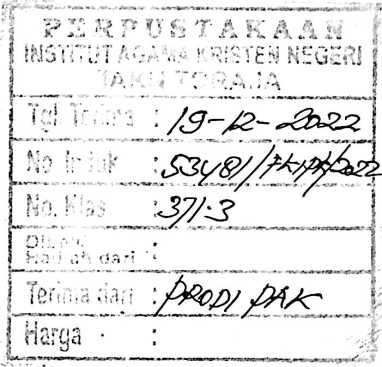 PERPUSTAKAAN
INSTITUT AGAMA KRISTEN NEGERI
IAKN TORAJA
Tgl. Terima : 19-12-2022
No. Induk : 53481//2022
No. Klas : 371.3
Dibeli
Hadiah dari :
Terima dari : PRODI PAK
Harga :